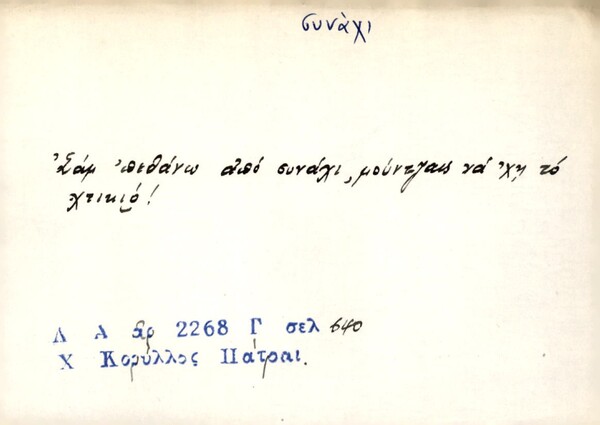 συνάχι
Σάμ 'πεθάνω ἀπό συνάχι, μούντζαις νά 'χῃ τό
χτικιό!
Λ Α αρ 2268 Γ σελ 640
Χ Κορύλλος Πάτραι.